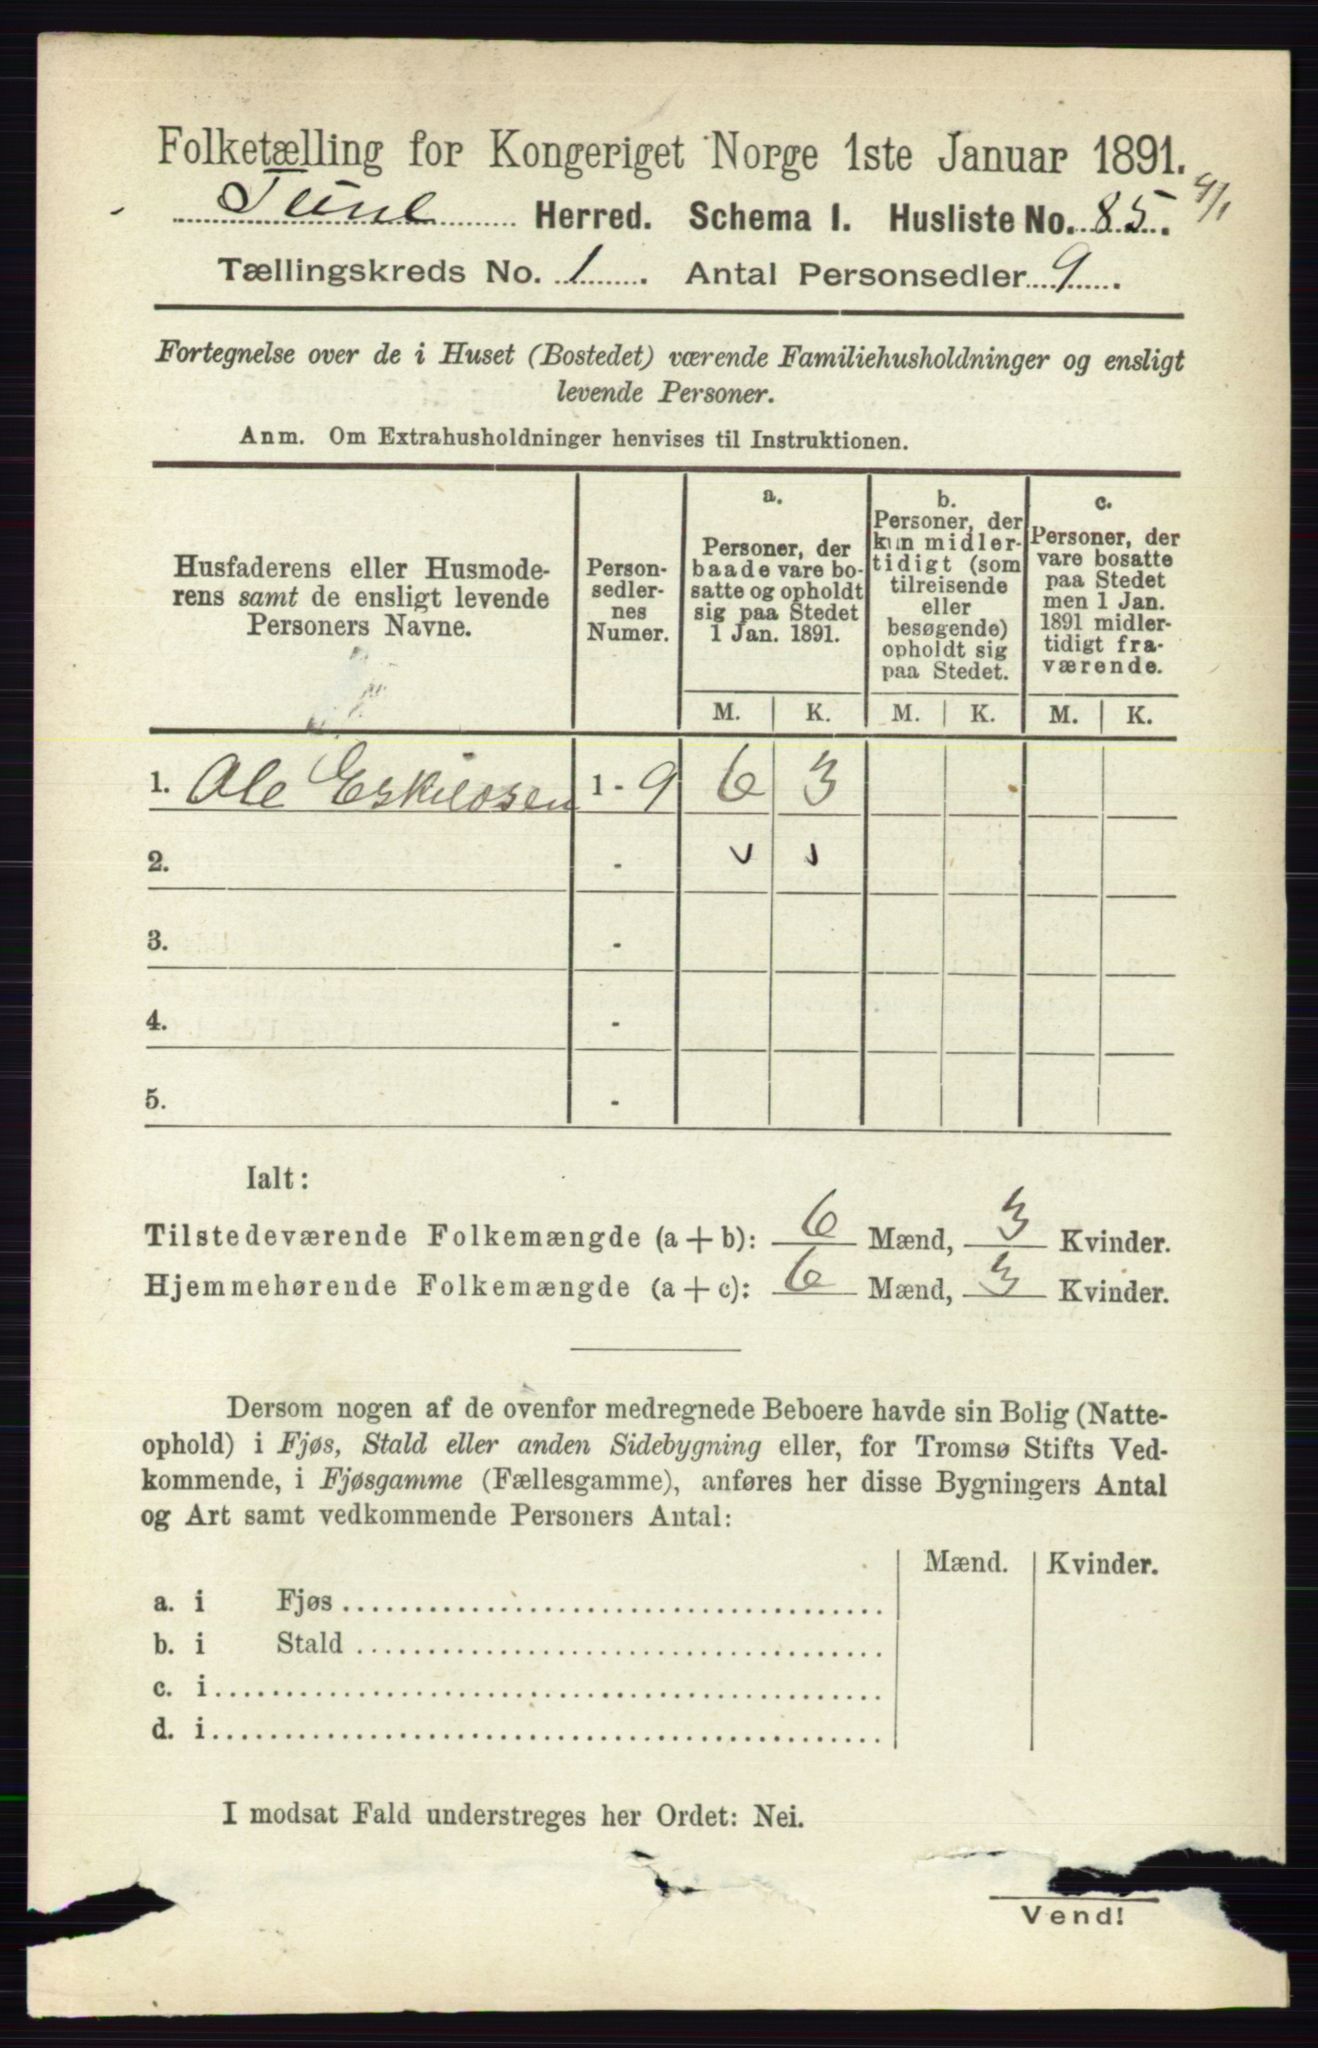 Folketælling for Kongeriget Norge 1ste Januar 1891.
Tune Herred. Schema 1. Husliste No. 85. 4/1
Tællingskreds No. 1. Antal Personsedler 9.
Fortegnelse over de i Huset (Bostedet) værende Familiehusholdninger og ensligt
levende Personer.
Anm. Om Extrahusholdninger henvises til Instruktionen.
Husfaderens eller Husmode-
rens samt de ensligt levende
Personers Navne.
Person-
sedler-
nes
Numer.
a.
Personer, der
baade vare bo-
satte og opholdt
sig paa Stedet
1 Jan. 1891.
b.
Personer, der
kun midler-
tidigt (som
tilreisende
eller
besøgende)
opholdt sig
paa Stedet.
c.
Personer, der
vare bosatte
paa Stedet
men 1 Jan.
1891 midler-
tidigt fra-
værende.
M. K. M. K. M. K.
1. Ole Eskildsen 1 - 9 6 3
2. - v v
3. -
4. -
5. -
Ialt:
Tilstedeværende Folkemængde (a + b): 6 Mænd, 3 Kvinder.
Hjemmehørende Folkemængde (a + c): 6 Mænd, 3 Kvinder.
Dersom nogen af de ovenfor medregnede Beboere havde sin Bolig (Natte-
ophold) i Fjøs, Stald eller anden Sidebygning eller, for Tromsø Stifts Ved-
kommende, i Fjøsgamme (Fællesgamme), anføres her disse Bygningers Antal
og Art samt vedkommende Personers Antal:
Mænd. Kvinder.
a. i Fjøs
b. i Stald
c. i
d. i
I modsat Fald understreges her Ordet: Nei.
Vend!